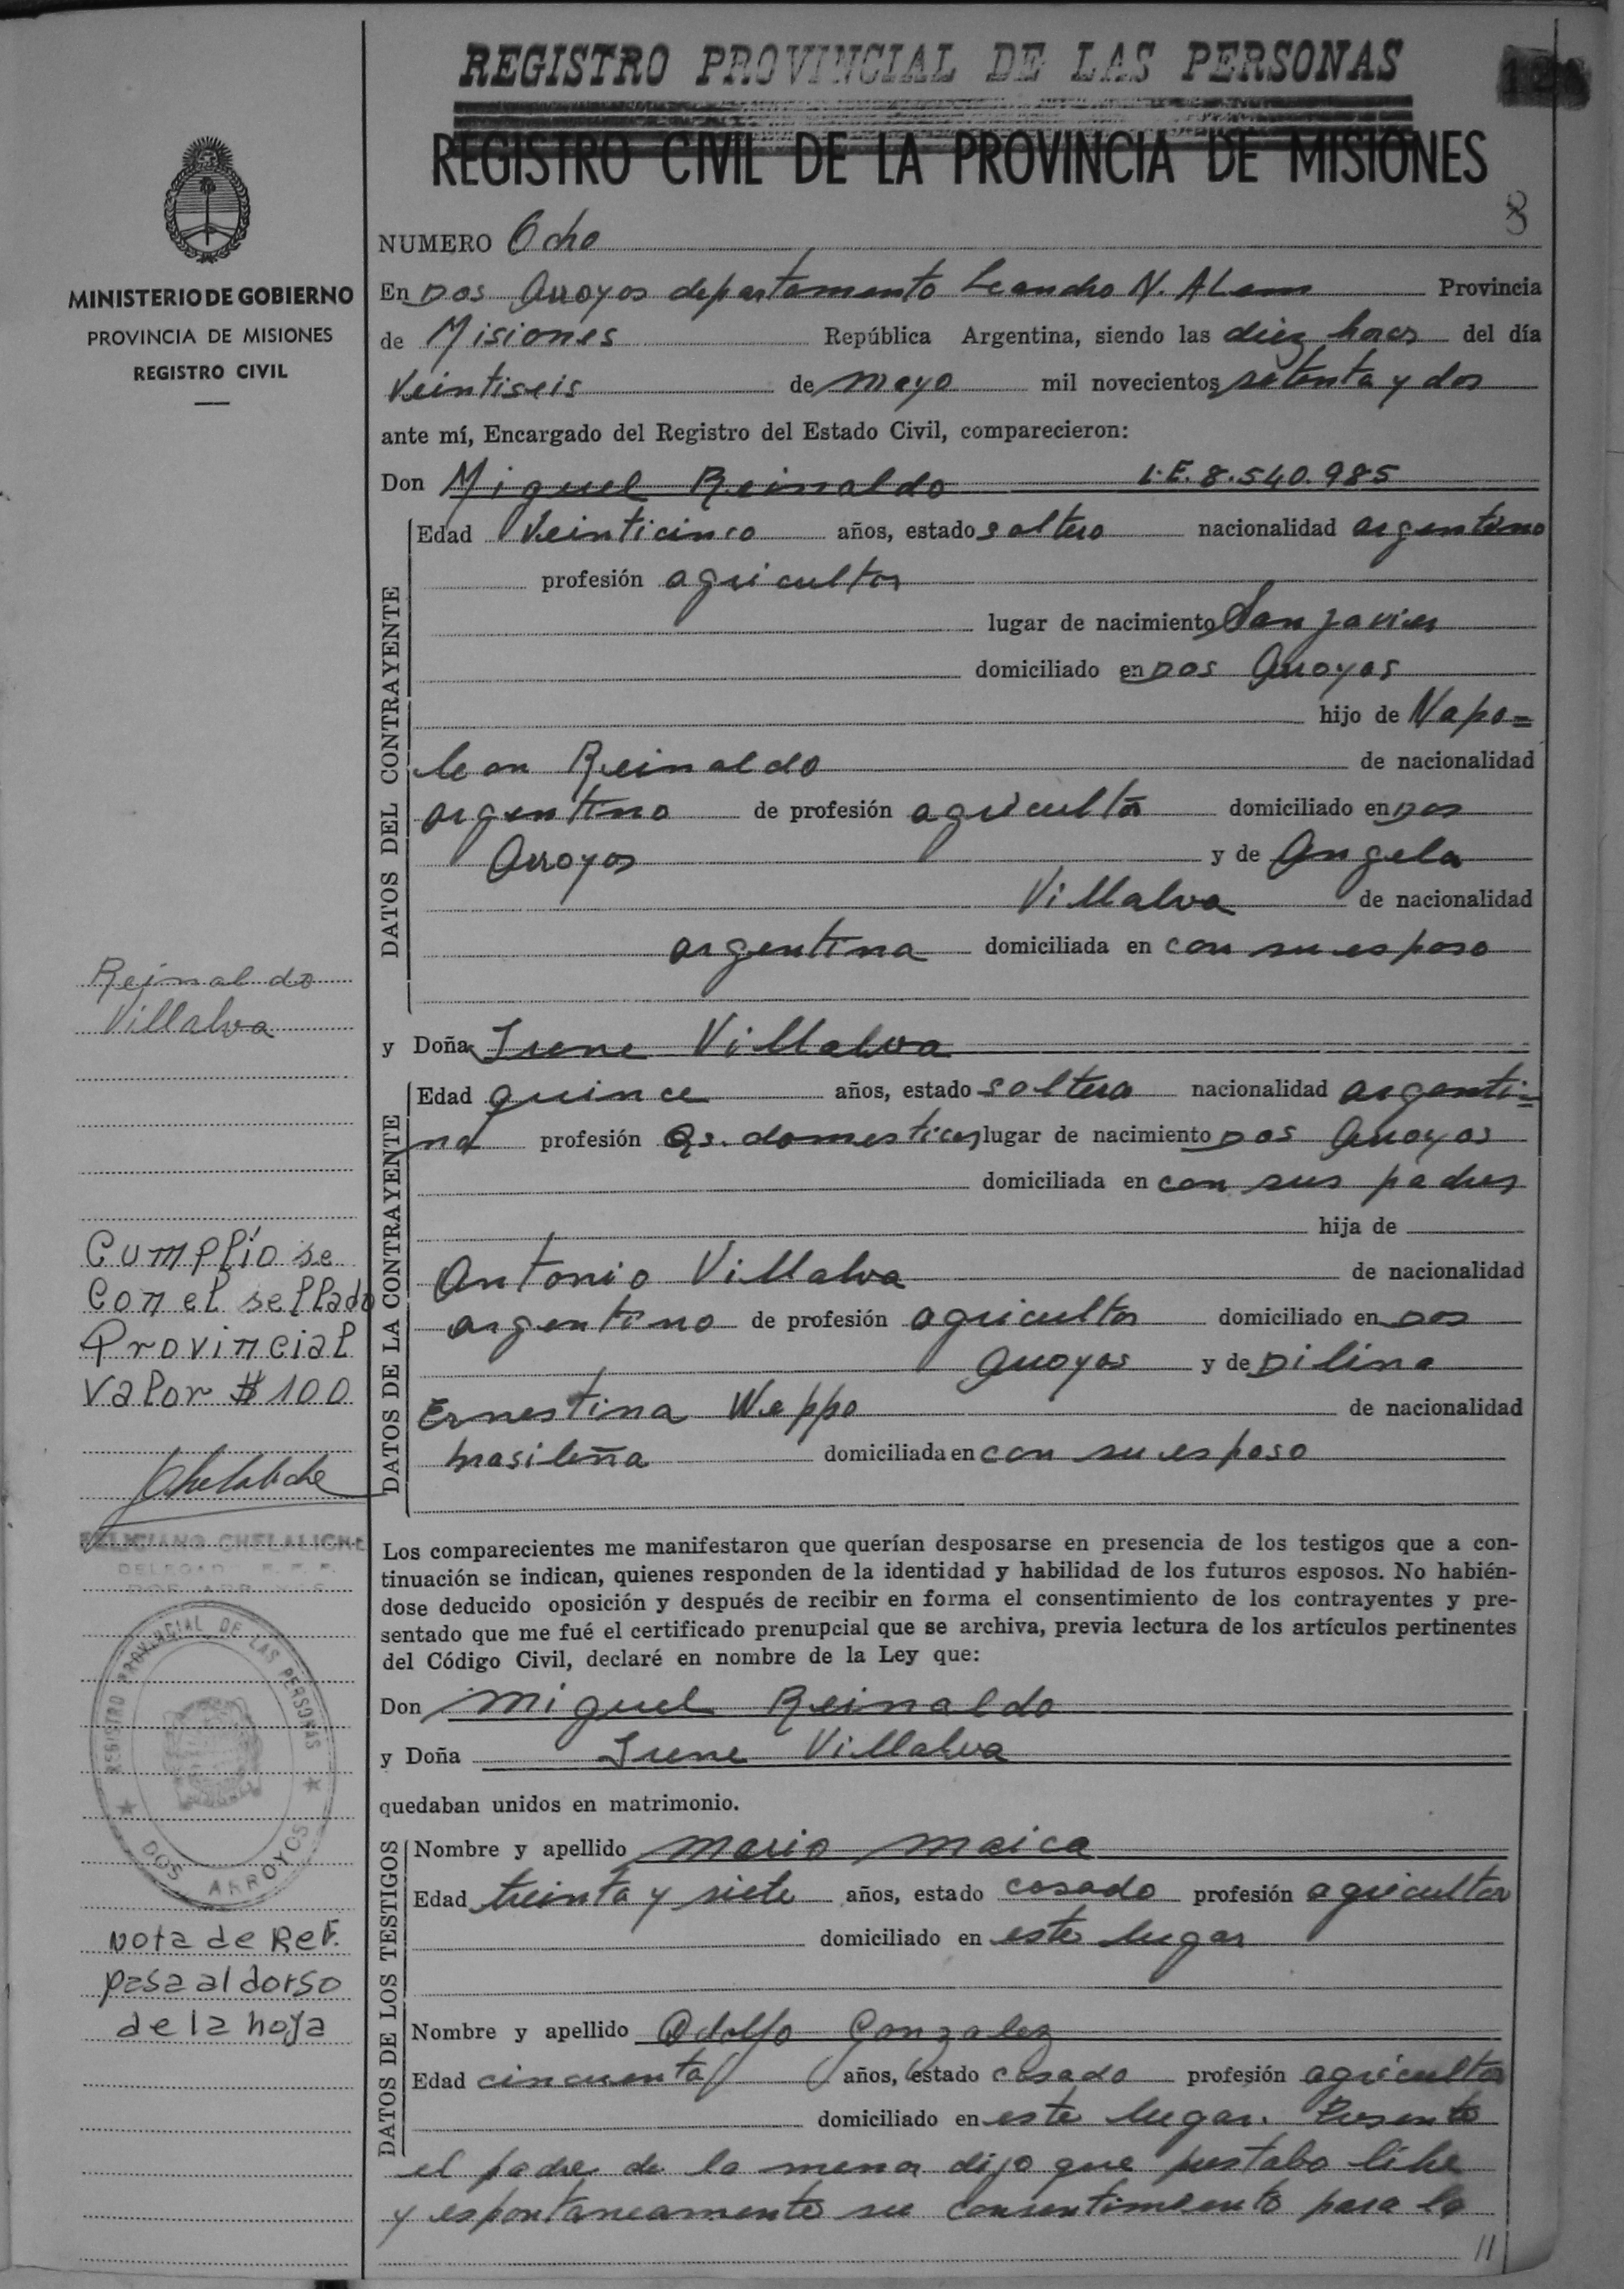 REGISTRO PROVINCIAL DE LAS PERSONAS
REGISTRO CIVIL DE LA PROVINCIA DE MISIONES
8
MINISTERIO DE GOBIERNO
PROVINCIA DE MISIONES
REGISTRO CIVIL
NUMERO Ocho
En Dos Arroyos departamento Leandro N. ALem Provincia
de Misiones República Argentina, siendo las diez horas del día
Veintiseis de mayo mil novecientos setenta y dos
ante mí, Encargado del Registro del Estado Civil, comparecieron:
Don Miguel Reinaldo L.E. 8.540.985
DATOS DEL CONTRAYENTE
Edad Veinticinco años, estado soltero nacionalidad argentino
profesión agricultor
lugar de nacimiento San Javier
domiciliado en Dos Arroyos
hijo de Napo=
leon Reinaldo de nacionalidad
argentino de profesión agricultor domiciliado en Dos
Arroyos y de Angela
Villalva de nacionalidad
argentina domiciliada en con su esposo
Reinaldo
Villalva
y Doña Irene Villalva
DATOS DE LA CONTRAYENTE
Edad quince años, estado soltera nacionalidad argenti=
na profesión Qs. domesticos lugar de nacimiento Dos Arroyos
domiciliada en con sus padres
hija de
Antonio Villalva de nacionalidad
argentino de profesión agricultor domiciliado en Dos
Arroyos y de Dilina
Ernestina Weppo de nacionalidad
brasileña domiciliada en con su esposo
Cumplio se
con el sellado
Provincial
Valor $ 100
FELICIANO CHELALICHE
DELEGAD R.P.P.
DOS ARROYOS
Los comparecientes me manifestaron que querían desposarse en presencia de los testigos que a con-
tinuación se indican, quienes responden de la identidad y habilidad de los futuros esposos. No habién-
dose deducido oposición y después de recibir en forma el consentimiento de los contrayentes y pre-
sentado que me fué el certificado prenupcial que se archiva, previa lectura de los artículos pertinentes
del Código Civil, declaré en nombre de la Ley que:
Don Miguel Reinaldo
y Doña Irene Villalva
quedaban unidos en matrimonio.
REGISTRO PROVINCIAL DE LAS PERSONAS
DOS ARROYOS
DATOS DE LOS TESTIGOS
Nombre y apellido Mario Maica
Edad treinta y siete años, estado casado profesión agricultor
domiciliado en este lugar
Nota de Ref.
pasa al dorso
de la hoja
Nombre y apellido Adolfo Gonzalez
Edad cincuenta años, estado casado profesión agricultor
domiciliado en este lugar. Presente
el padre de la menor dijo que prestaba libre
y espontaneamente su consentimiento para la
//